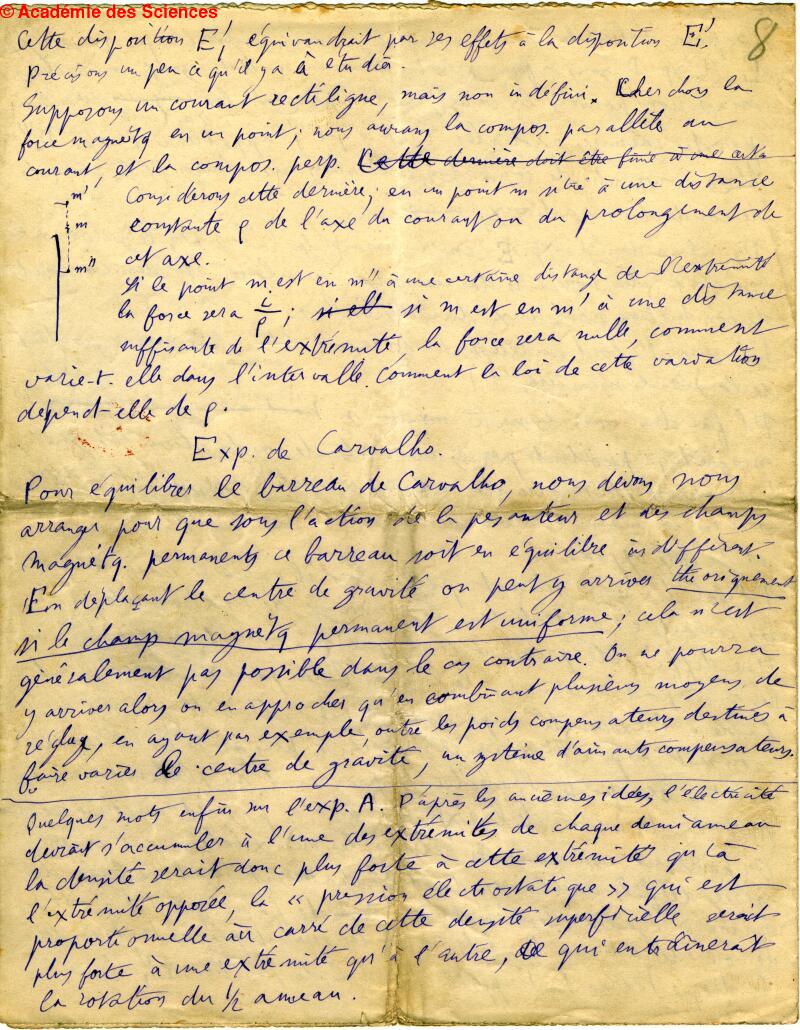 © Académie des Sciences
8
Cette disposition E', équivaudrait par ses effets à la disposition E'.
Précisons un peu ce qu'il y a à étudier.
Supposons un courant rectiligne, mais non indéfini. Cherchons la
force magnétq en un point; nous aurons la compos. parallèle au
courant, et la compos. perp. Cette dernière doit être finie à une certa
m' Considérons cette dernière; en un point m situé à une distance
m constante ρ de l'axe du courant ou du prolongement de
m'' cet axe.
Si le point m est en m'' à une certaine distance de l'extrémité
la force sera i/ρ; si ell si m est en m' à une distance
suffisante de l'extrémité, la force sera nulle, comment
varie-t-elle dans l'intervalle. Comment la loi de cette variation
dépend-elle de ρ.
Exp. de Carvalho.
Pour équilibrer le barreau de Carvalho, nous devons nous
arranger pour que sous l'action de la pesanteur et des champs
magnétq. permanents ce barreau soit en équilibre indifférent.
En déplaçant le centre de gravité on peut y arriver théoriquement
si le champ magnétq permanent est uniforme; cela n'est
généralement pas possible dans le cas contraire. On ne pourra
y arriver alors ou en approcher qu'en combinant plusieurs moyens de
réglage, en ayant par exemple, outre les poids compensateurs destinés à
faire varier le centre de gravité, un système d'aimants compensateurs.
Quelques mots enfin sur l'exp. A. D'après les anciennes idées, l'électricité
devrait s'accumuler à l'une des extrémités de chaque demi anneau
la densité serait donc plus forte à cette extrémité qu'à
l'extrémité opposée, la « pression électrostatique » qui est
proportionnelle au carré de cette densité superficielle serait
plus forte à une extrémité qu'à l'autre, ce qui entraînerait
la rotation du ½ anneau.